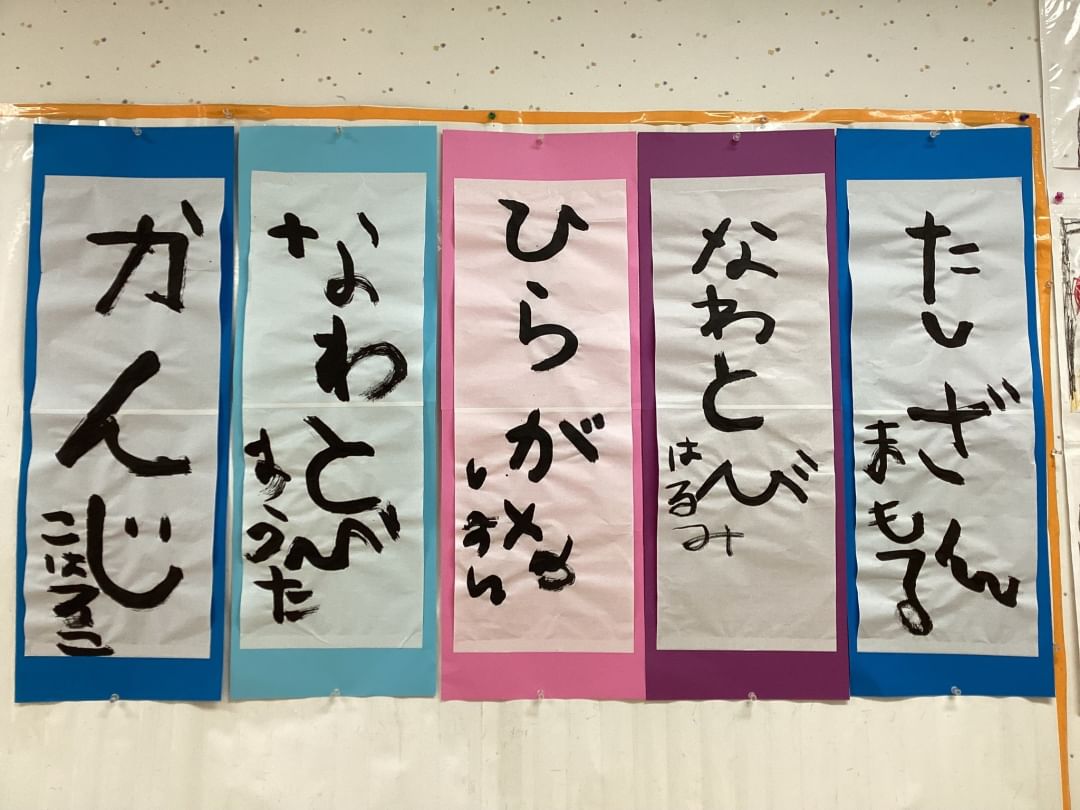 たしざん
まもる
なわとび
はるみ
ひらがな
なわとび
かんじ
こはるこ